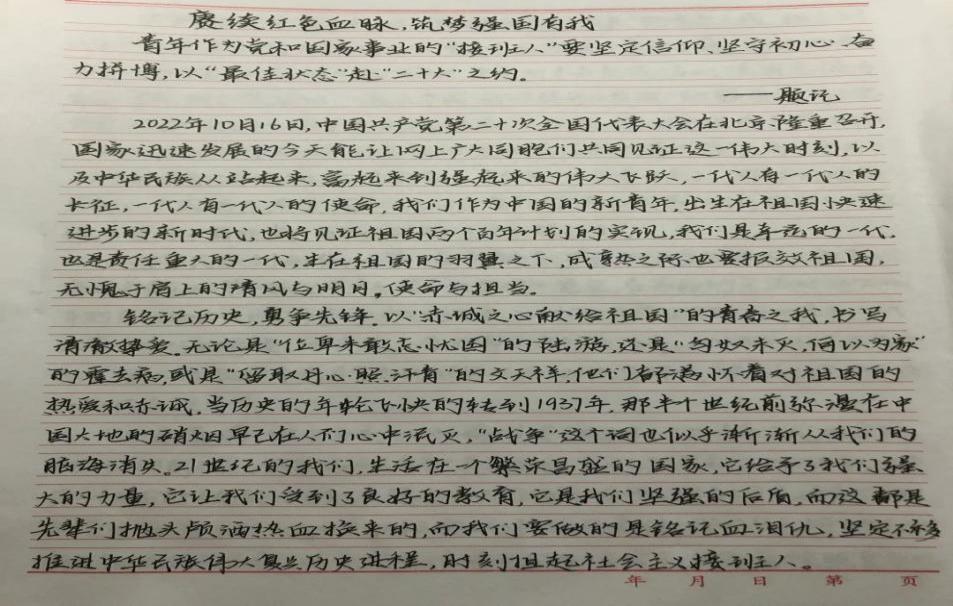 赓续红色血脉,筑梦强国有我
青年作为党和国家事业的“接班人”要坚定信仰、坚守初心、奋
力拼博,以“最佳状态”赴“二十大”之约。
——题记
2022年10月16日,中国共产党第二十次全国代表大会在北京隆重召开,
国家迅速发展的今天能让网上广大同胞们共同见证这一伟大时刻,以
及中华民族从站起来,富起来到强起来的伟大飞跃,一代人有一代人的
长征,一代人有一代人的使命,我们作为中国的新青年,出生在祖国快速
进步的新时代,也将见证祖国两个百年计划的实现,我们是幸运的一代,
也是责任重大的一代,生在祖国的羽翼之下,成熟之际也要报效祖国,
无愧于肩上的清风与明月,使命与担当。
铭记历史,勇争先锋.以“赤诚之心献给祖国”的青春之我,书写
清澈挚爱.无论是“位卑未敢忘忧国”的陆游,还是“匈奴未灭,何以为家”
的霍去病,或是“留取丹心照汗青”的文天祥,他们都满怀着对祖国的
热爱和赤诚,当历史的年轮飞快的转到1937年,那半个世纪前弥漫在中
国大地的硝烟早已在人们心中泯灭,“战争”这个词也似乎渐渐从我们的
脑海消失.21世纪的我们,生活在一个繁荣昌盛的国家,它给予了我们强
大的力量,它让我们受到了良好的教育,它是我们坚强的后盾,而这都是
先辈们抛头颅洒热血换来的,而我们要做的是铭记血泪仇,坚定不移
推进中华民族伟大复兴历史进程,时刻担起社会主义接班人。
年 月 日 第 页